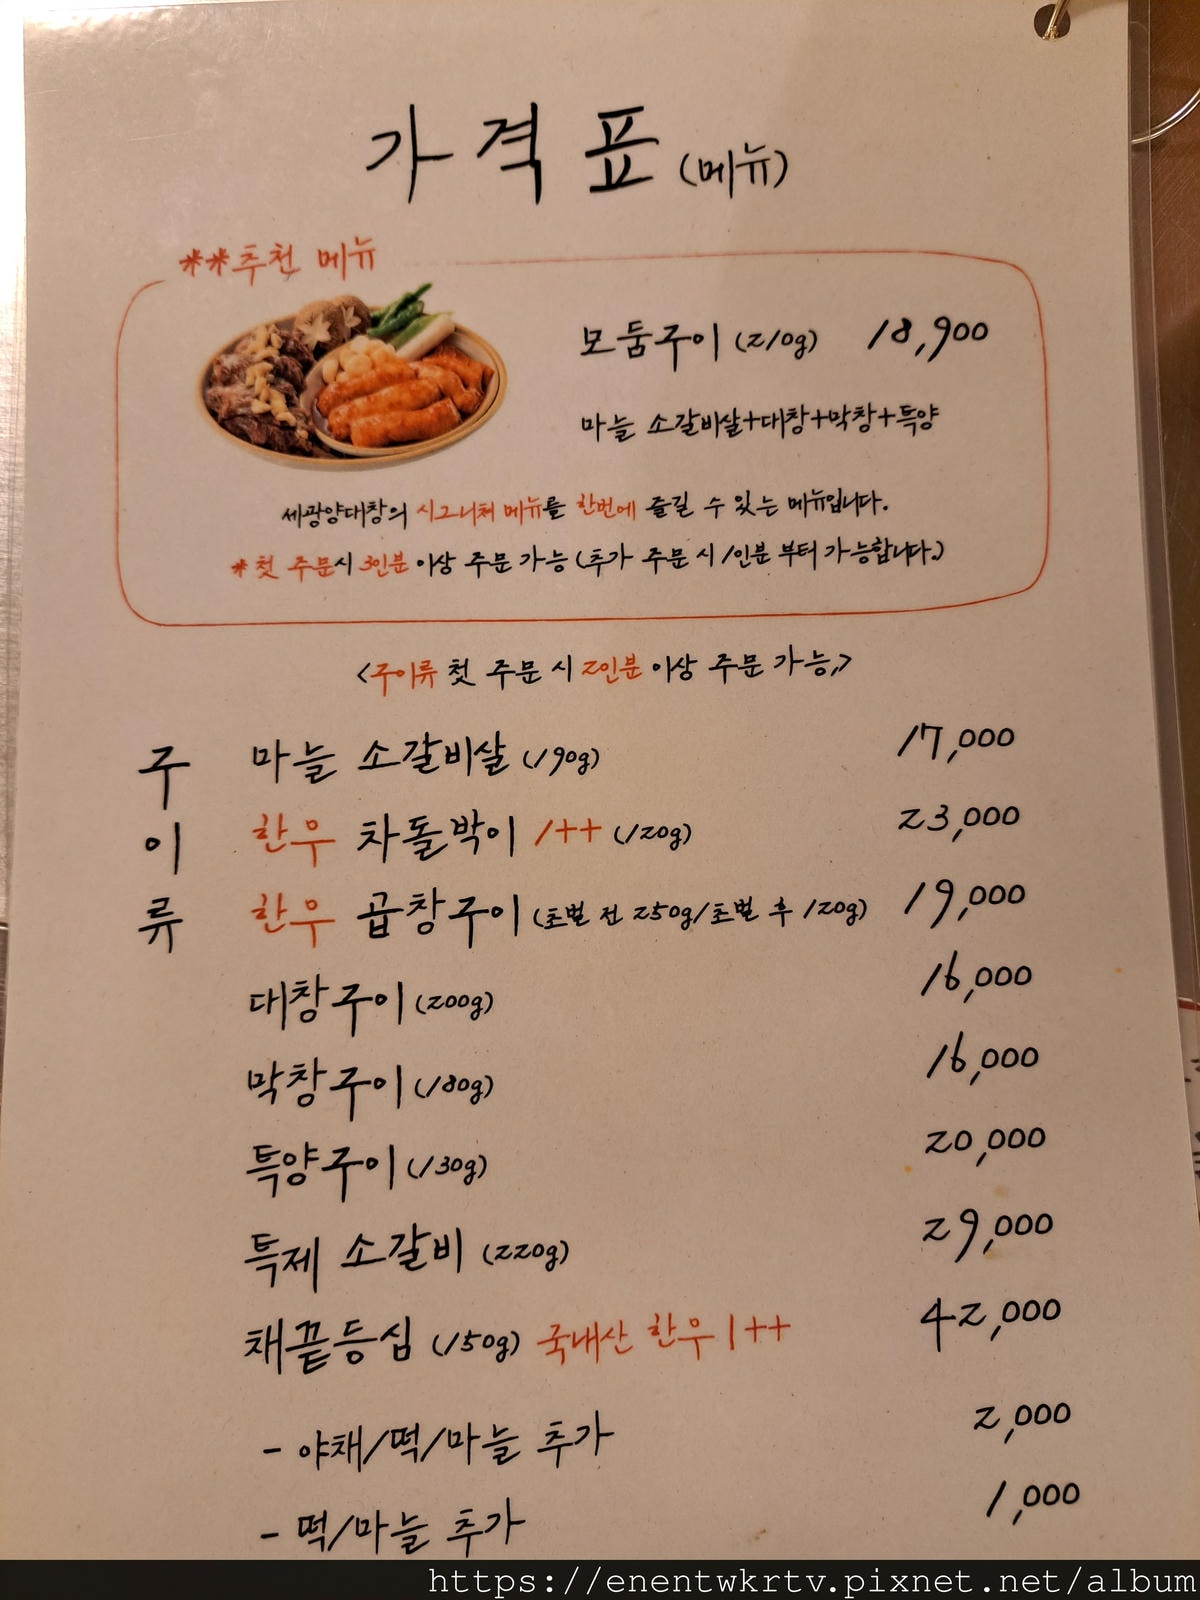 가격표 (메뉴)
**추천 메뉴
모둠구이 (210g) 18,900
마늘 소갈비살+대창+막창+특양
세광양대창의 시그니처 메뉴를 한번에 즐길 수 있는 메뉴입니다.
*첫 주문시 3인분 이상 주문 가능 (추가 주문 시 1인분 부터 가능합니다.)
<구이류 첫 주문 시 2인분 이상 주문 가능,>
구이류
마늘 소갈비살 (190g) 17,000
한우 차돌박이 1++ (120g) 23,000
한우 곱창구이 (초벌 전 250g/초벌 후 120g) 19,000
대창구이 (200g) 16,000
막창구이 (180g) 16,000
특양구이 (130g) 20,000
특제 소갈비 (220g) 29,000
채끝등심 (150g) 국내산 한우 1++ 42,000
- 야채/떡/마늘 추가 2,000
- 떡/마늘 추가 1,000
https://enentwkrtv.pixnet.net/album